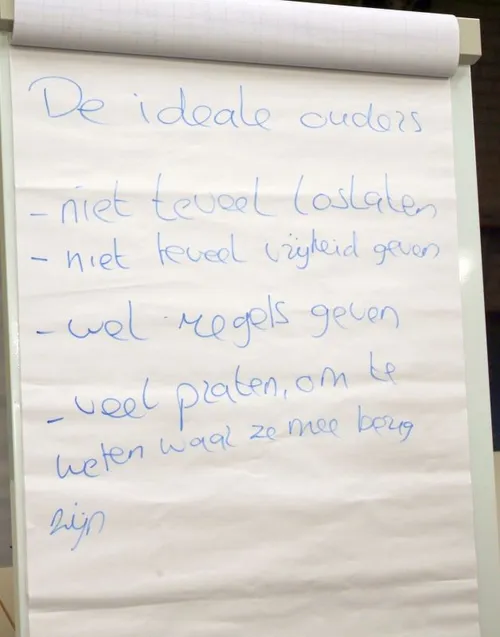 De ideale ouders
- niet teveel loslaten
- niet teveel vrijheid geven
- wel regels geven
- veel praten, om te
weten waar ze mee bezig
zijn